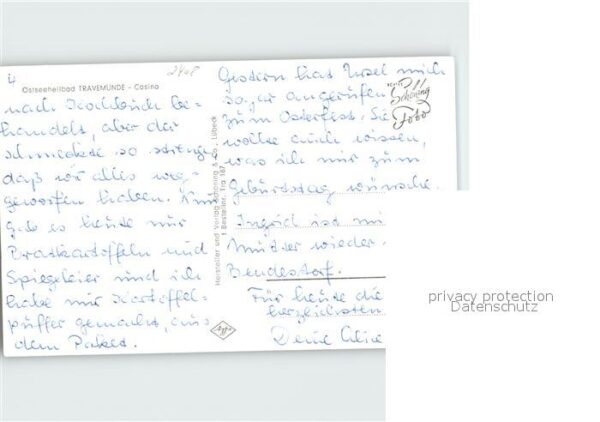 4
2408
Ostseeheilbad TRAVEMÜNDE - Casino
nach Kochbuch be=
handelt, aber der
schmeckte so streng
daß wir alles weg=
geworfen haben. Nun
gab es heute nur
Bratkartoffeln und
Spiegeleier und ich
habe mir Kartoffel=
puffer gemacht, aus
dem Paket.
Hersteller und Verlag Schöning & Co., Lübeck
Bestellnr. Tra 187
Agfa
Gestern hat Ursel mich
sogar angerufen
zum Osterfest. Sie
wollte auch wissen,
was ich mir zum
Geburtstag wünsche.
Ingrid ist mi
Mutter wieder
Bendestorf.
Für heute die
herzlichsten
Deine
Schöning
Foto
privacy protection
Datenschutz